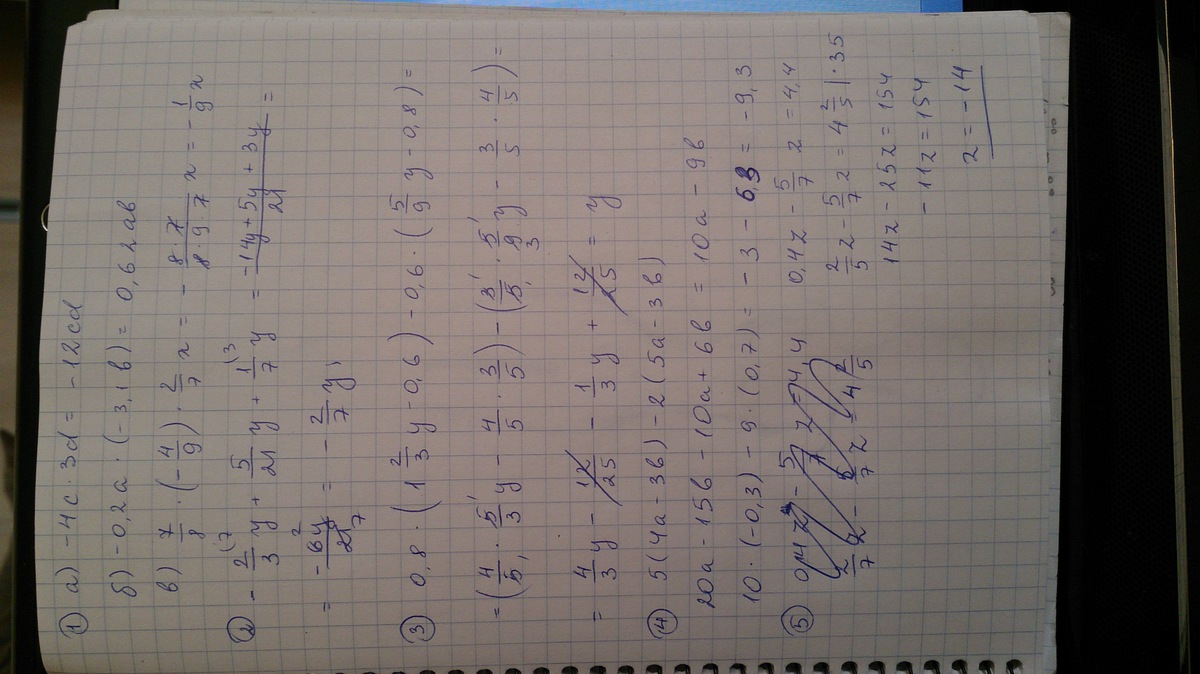 ① а) -4c · 3d = -12cd
б) -0,2a · (-3,1b) = 0,62ab
в) 7/8 · (-4/9) · 2/7 x = - 8·7/8·9·7 x = -1/9 x
② - 2/3 y + 5/21 y + 1/7 y = -14y + 5y + 3y/21 =
= -6y/21 = -2/7 y
③ 0,8 · (1 2/3 y - 0,6) - 0,6 · (5/9 y - 0,8) =
= (4/5 · 5/3 y - 4/5 · 3/5) - (3/5 · 5/9 y - 3/5 · 4/5) =
= 4/3 y - 12/25 - 1/3 y + 12/25 = y
④ 5(4a - 3b) - 2(5a - 3b)
20a - 15b - 10a + 6b = 10a - 9b
10 · (-0,3) - 9 · (0,7) = -3 - 6,3 = -9,3
⑤ 0,4z - 5/7 z = 4,4
2/5 z - 5/7 z = 4 2/5 | · 35
14z - 25z = 154
-11z = 154
z = -14